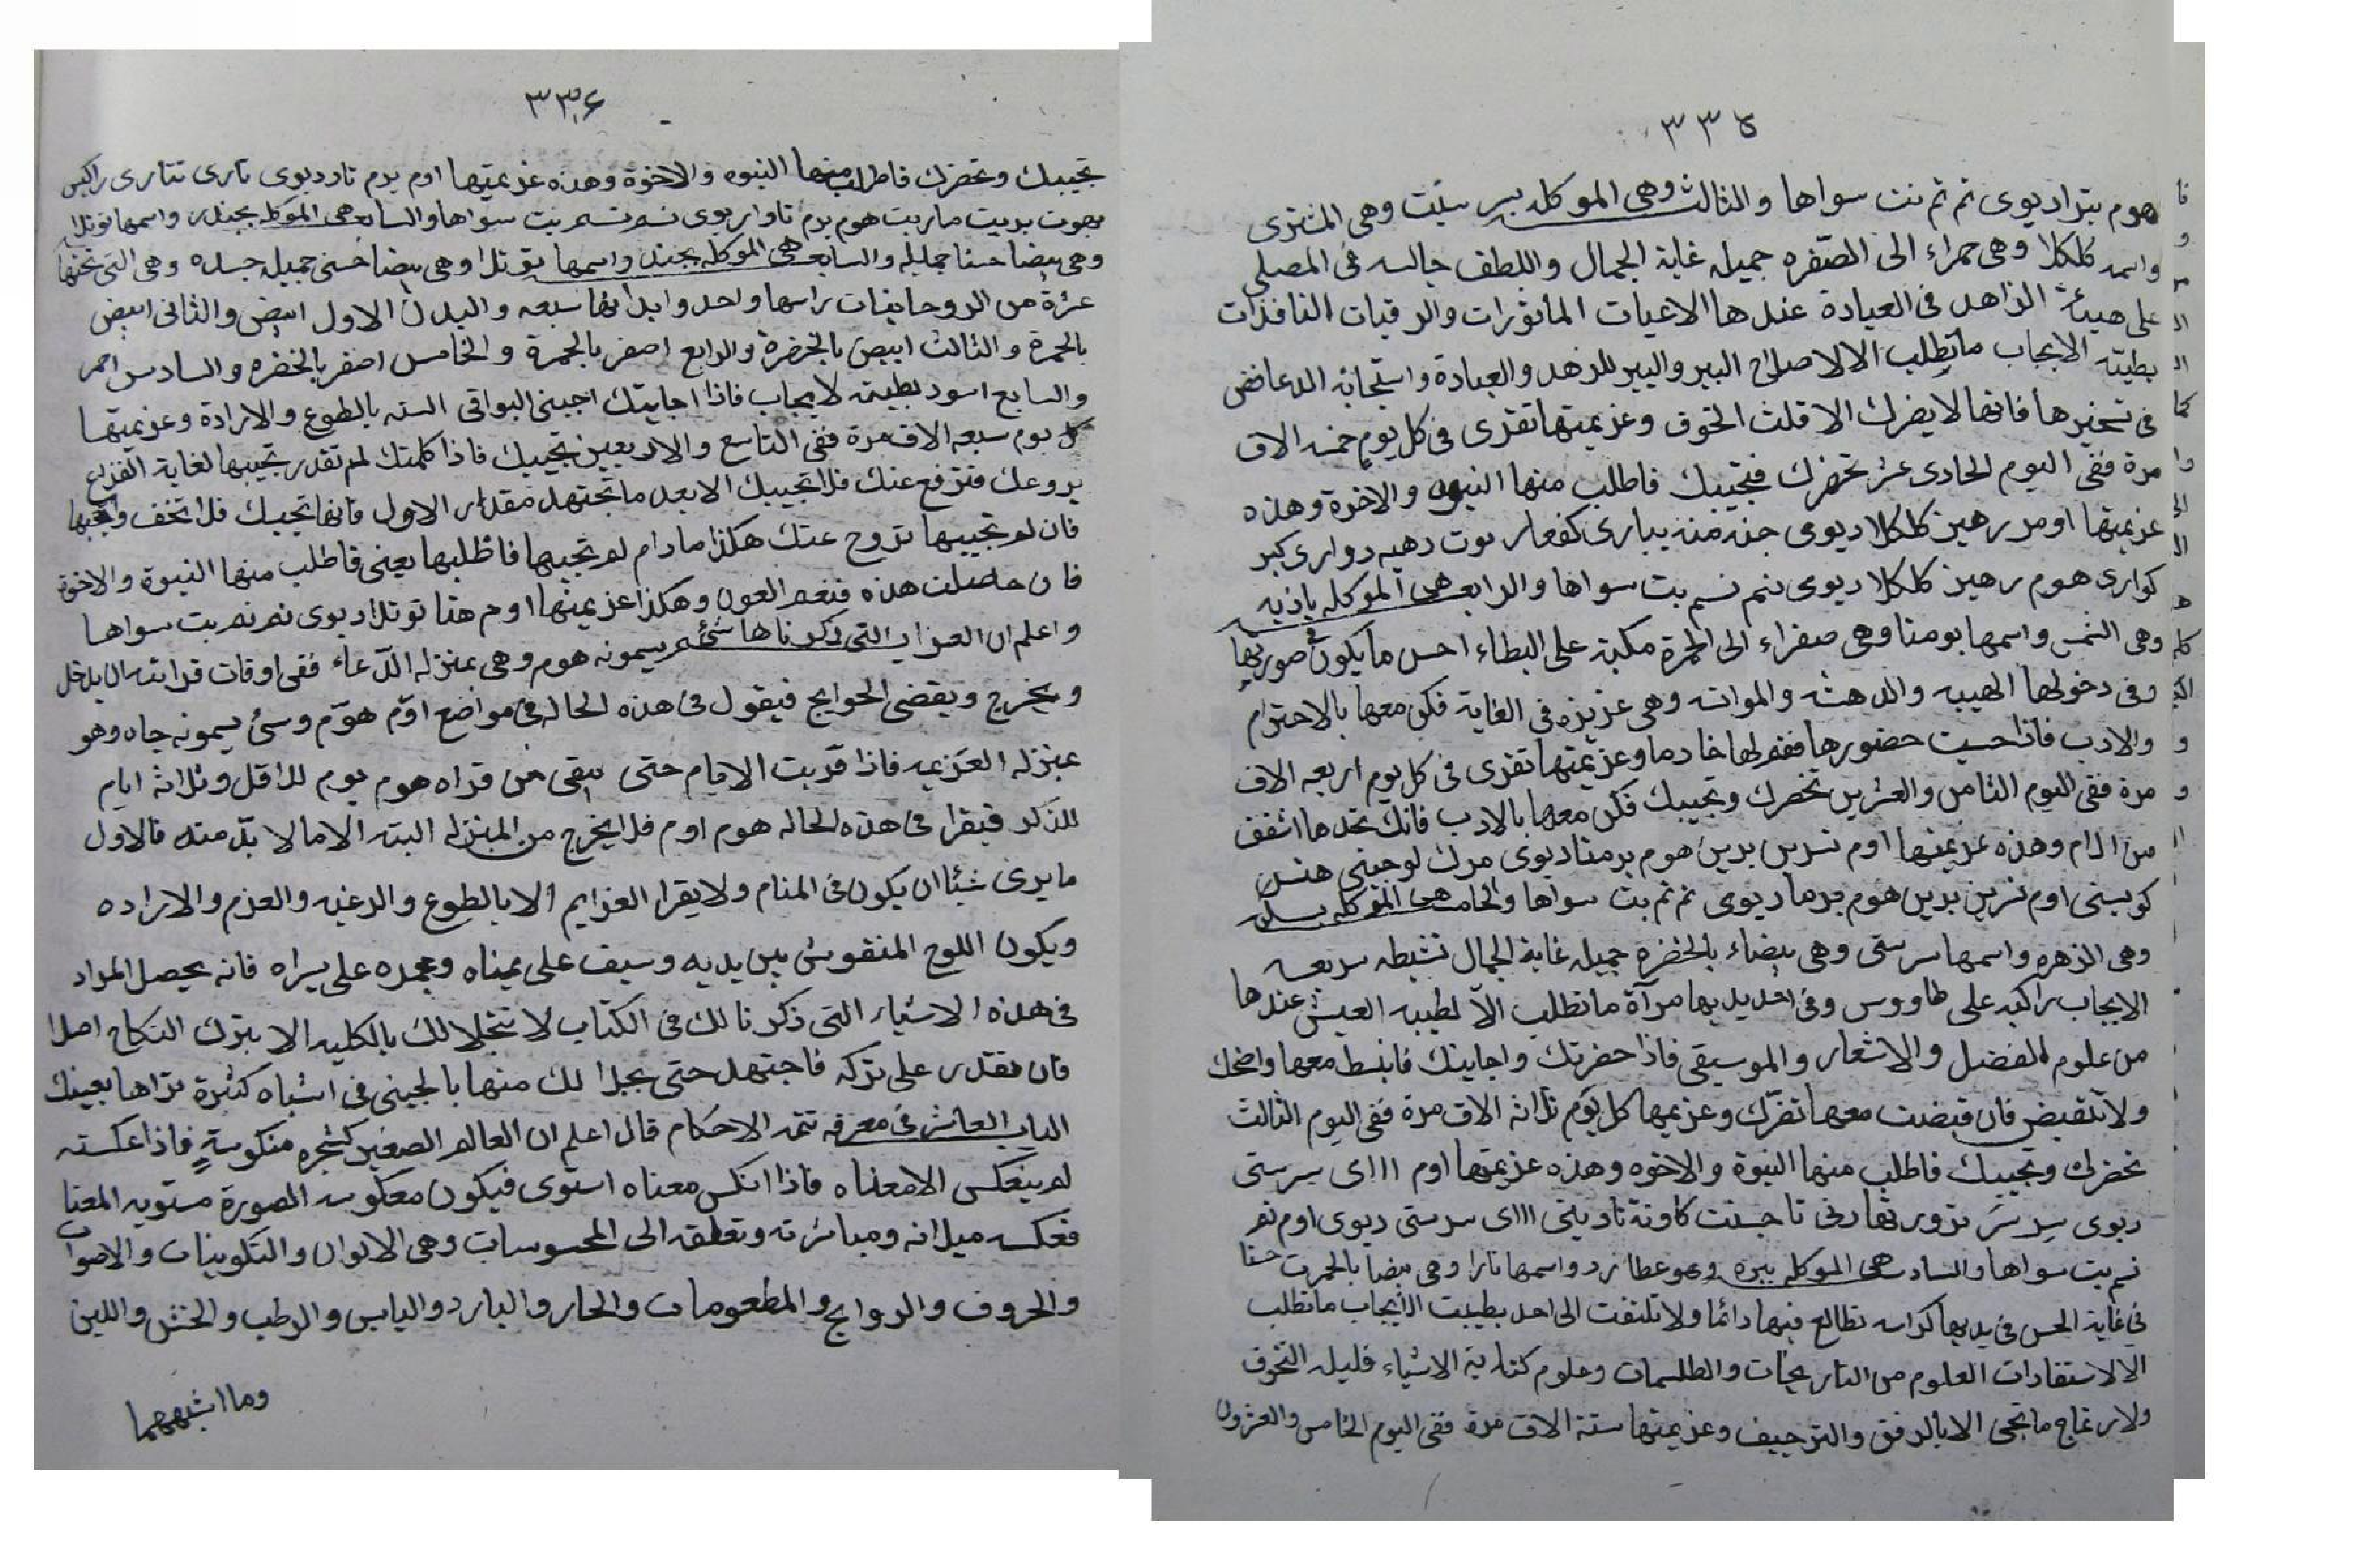 ٣٣٥
هوم بترا ديوى نم ثم نت سواها والثالث وهى الموكله ببر سبت وهى المشترى
واسمه كلكلا وهى حمراء الى الصّفره جميله غاية الجمال واللطف جالسه فى المصلى
على هيئة الزاهد فى العبادة عندها الاعيات الماثورات والرقيات النافذات
بطيئه الايجاب ماتطلب الا لاصلاح البير والبير للزهد والعبادة واستجابه الدعا فض
فى تسخيرها فانها لا يضرك الا قلت الخوف وعزيمتها تقرى فى كل يوم خمسه الاف
مرة ففى اليوم الحادى عشر تحضرك فتجيبك فاطلب منها النبوه والاخوة وهذه
عزيمتها اوم رهين كلكلا ديوى
كوارى هوم رهين كلكلا ديوى نم نسم بت سواها والرابع هى الموكله باذيه
وهى الشمس واسمها بومنا وهى صفراء الى الحمرة مكبة على البطاء احسن ما يكون فى صورتها
وفى دخولها الهيبه والدهشه والموانسه وهى عزيزه فى الغاية فكن معها بالاحترام
والادب فاذا حسيت حضورها فقم لها خادما وعزيمتها تقرى فى كل يوم اربعه الاف
مرة ففى اليوم الثامن والعشرين تحضرك وتجيبك فكن معها بالادب فانك تجدها اشفف
من الام وهذه عزيمتها اوم نسرين بدين هوم برمنا ديوى مرك لوجينى هنس
كوبسنى اوم نرين بدين هوم برما ديوى نم ثم بت سواها والخامسه هى الموكله بسكر
وهى الزهره واسمها سرستى وهى بيضاء بالخضره جميله غاية الجمال نشيطه سريعه
الايجاب راكبه على طاووس وفى احد يديها مرآة ماتطلب الآ لطيبه العيش عندها
من علوم الفضل والاشعار والموسيقى فاذا حضرتك واجابتك فانبسط معها واضحك
ولا تنقبض فان قبضت معها تضرّك وعزيمها كل يوم ثلاثه الاف مرة ففى اليوم الثالث
تحضرك وتجيبك فاطلب منها النبوة والاخوه وهذه عزيمتها اوم ااا اى سرستى
ديوى سرسر
نسم بت سواها والسادسه هى الموكله ببره وهو عطارد واسمها تارا وهى بيضا بالحمرت حسنا
فى غاية الحسن فى يديها كراسه تطالع فيها دائما ولا تلتفت الى احد بطيئت الايجاب ماتطلب
الا لاستفادات العلوم من النارنجات والطلسمات وعلوم كتابة الاشياء قليله التخوف
ولارغاج ماتجى الا بالرفق والترحيف وعزيمتها ستة الاف مرة ففى اليوم الخامس والعشرون
٣٣٦
تجيبك وتحضرك فاطلب منها النبوه والاخوة وهذه عزيمتها اوم بدم تارديوى تارى تتارى راكبس
بت سواها والسابعه هى الموكله بجندر واسمها توتلا
وهى بيضا حسنا جميله والسابعه هى الموكله بجندر واسمها توتلا وهى بيضا حسنى جميله جسده وهى التى تحتها
عشرة من الروحانيات راسها واحد وابدانها سبعه والبدن الاول ابيض والثانى ابيض
بالحمرة والثالث ابيض بالخضرة والرابع اصفر بالحمرة والخامس اصفر بالخضره والسادس احمر
والسابع اسود بطيئة لايجاب فاذا اجابتك اجيبنى البواقى السته بالطوع والارادة وعزيمتها
كل يوم سبعه الاف مرة ففى التاسع والاربعين تجيبك فاذا كلمتك لم تقدر تجيبها لغاية الفزع
يروعك فترفع عنك فلا تجيبك الا بعد ماتجتهد مقدار الاول فانها تجيبك فلا تخف واجيبها
فان لم تجيبها تروح عنك هكذا مادام لم تجيبها فاطلبها يعنى فاطلب منها النبوة والاخوة
فان حصلت هذه فنعم العون وهكذا عزيمتها اوم هنا توتلا ديوى نم نم بت سواها
واعلم ان العزايم التى ذكرناها شئ يسمونه هوم وهى بمنزله الدّعاء ففى اوقات قرائته ان يدخل
ويخرج ويقضى الحوايج فيقول فى هذه الحاله فى مواضع اوّم هوّم وسئ يسمونه جاه وهو
بمنزله العزيمه فاذا قرّبت الايام حتى يبقى من قراه هوم يوم للاقل وثلاثه ايام
للذكر فيقرا فى هذه الحاله هوم اوم فلا يخرج من المنزله البته الا مالا بدّ منه فالاول
مايرى شيئا ان يكون فى المنام ولا يقرا العزايم الا بالطوع والرغبه والعزم والاراده
ويكون اللوح المنقوش بين يديه وسيف على يمناه وعجره على يسراه فانه يحصل المراد
فى هذه الاشياء التى ذكرنا لك فى الكتاب لا تتجلا لك بالكليه الا بترك النكاح اصلا
فان تقدر على تركه فاجتهد حتى يجلا لك منها بالجينى فى اشياه كثيرة تراها بعينك
الباب العاشر فى معرفه تتمه الاحكام قال اعلم ان العالم الصغير كشجره منكوسةٍ فاذا عكسته
لم ينعكس الا معناه فاذا انكس معناه استوى فيكون معكوسه الصورة مستويه المعنا
فعكسه ميلانه ومباشرته وتعلقه الى المحسوسات وهى الالوان والتكوينات والاصوات
والحروف والروايح والمطعومات والحار والبارد واليابس والرطب والخشن واللين
وما اشبههما